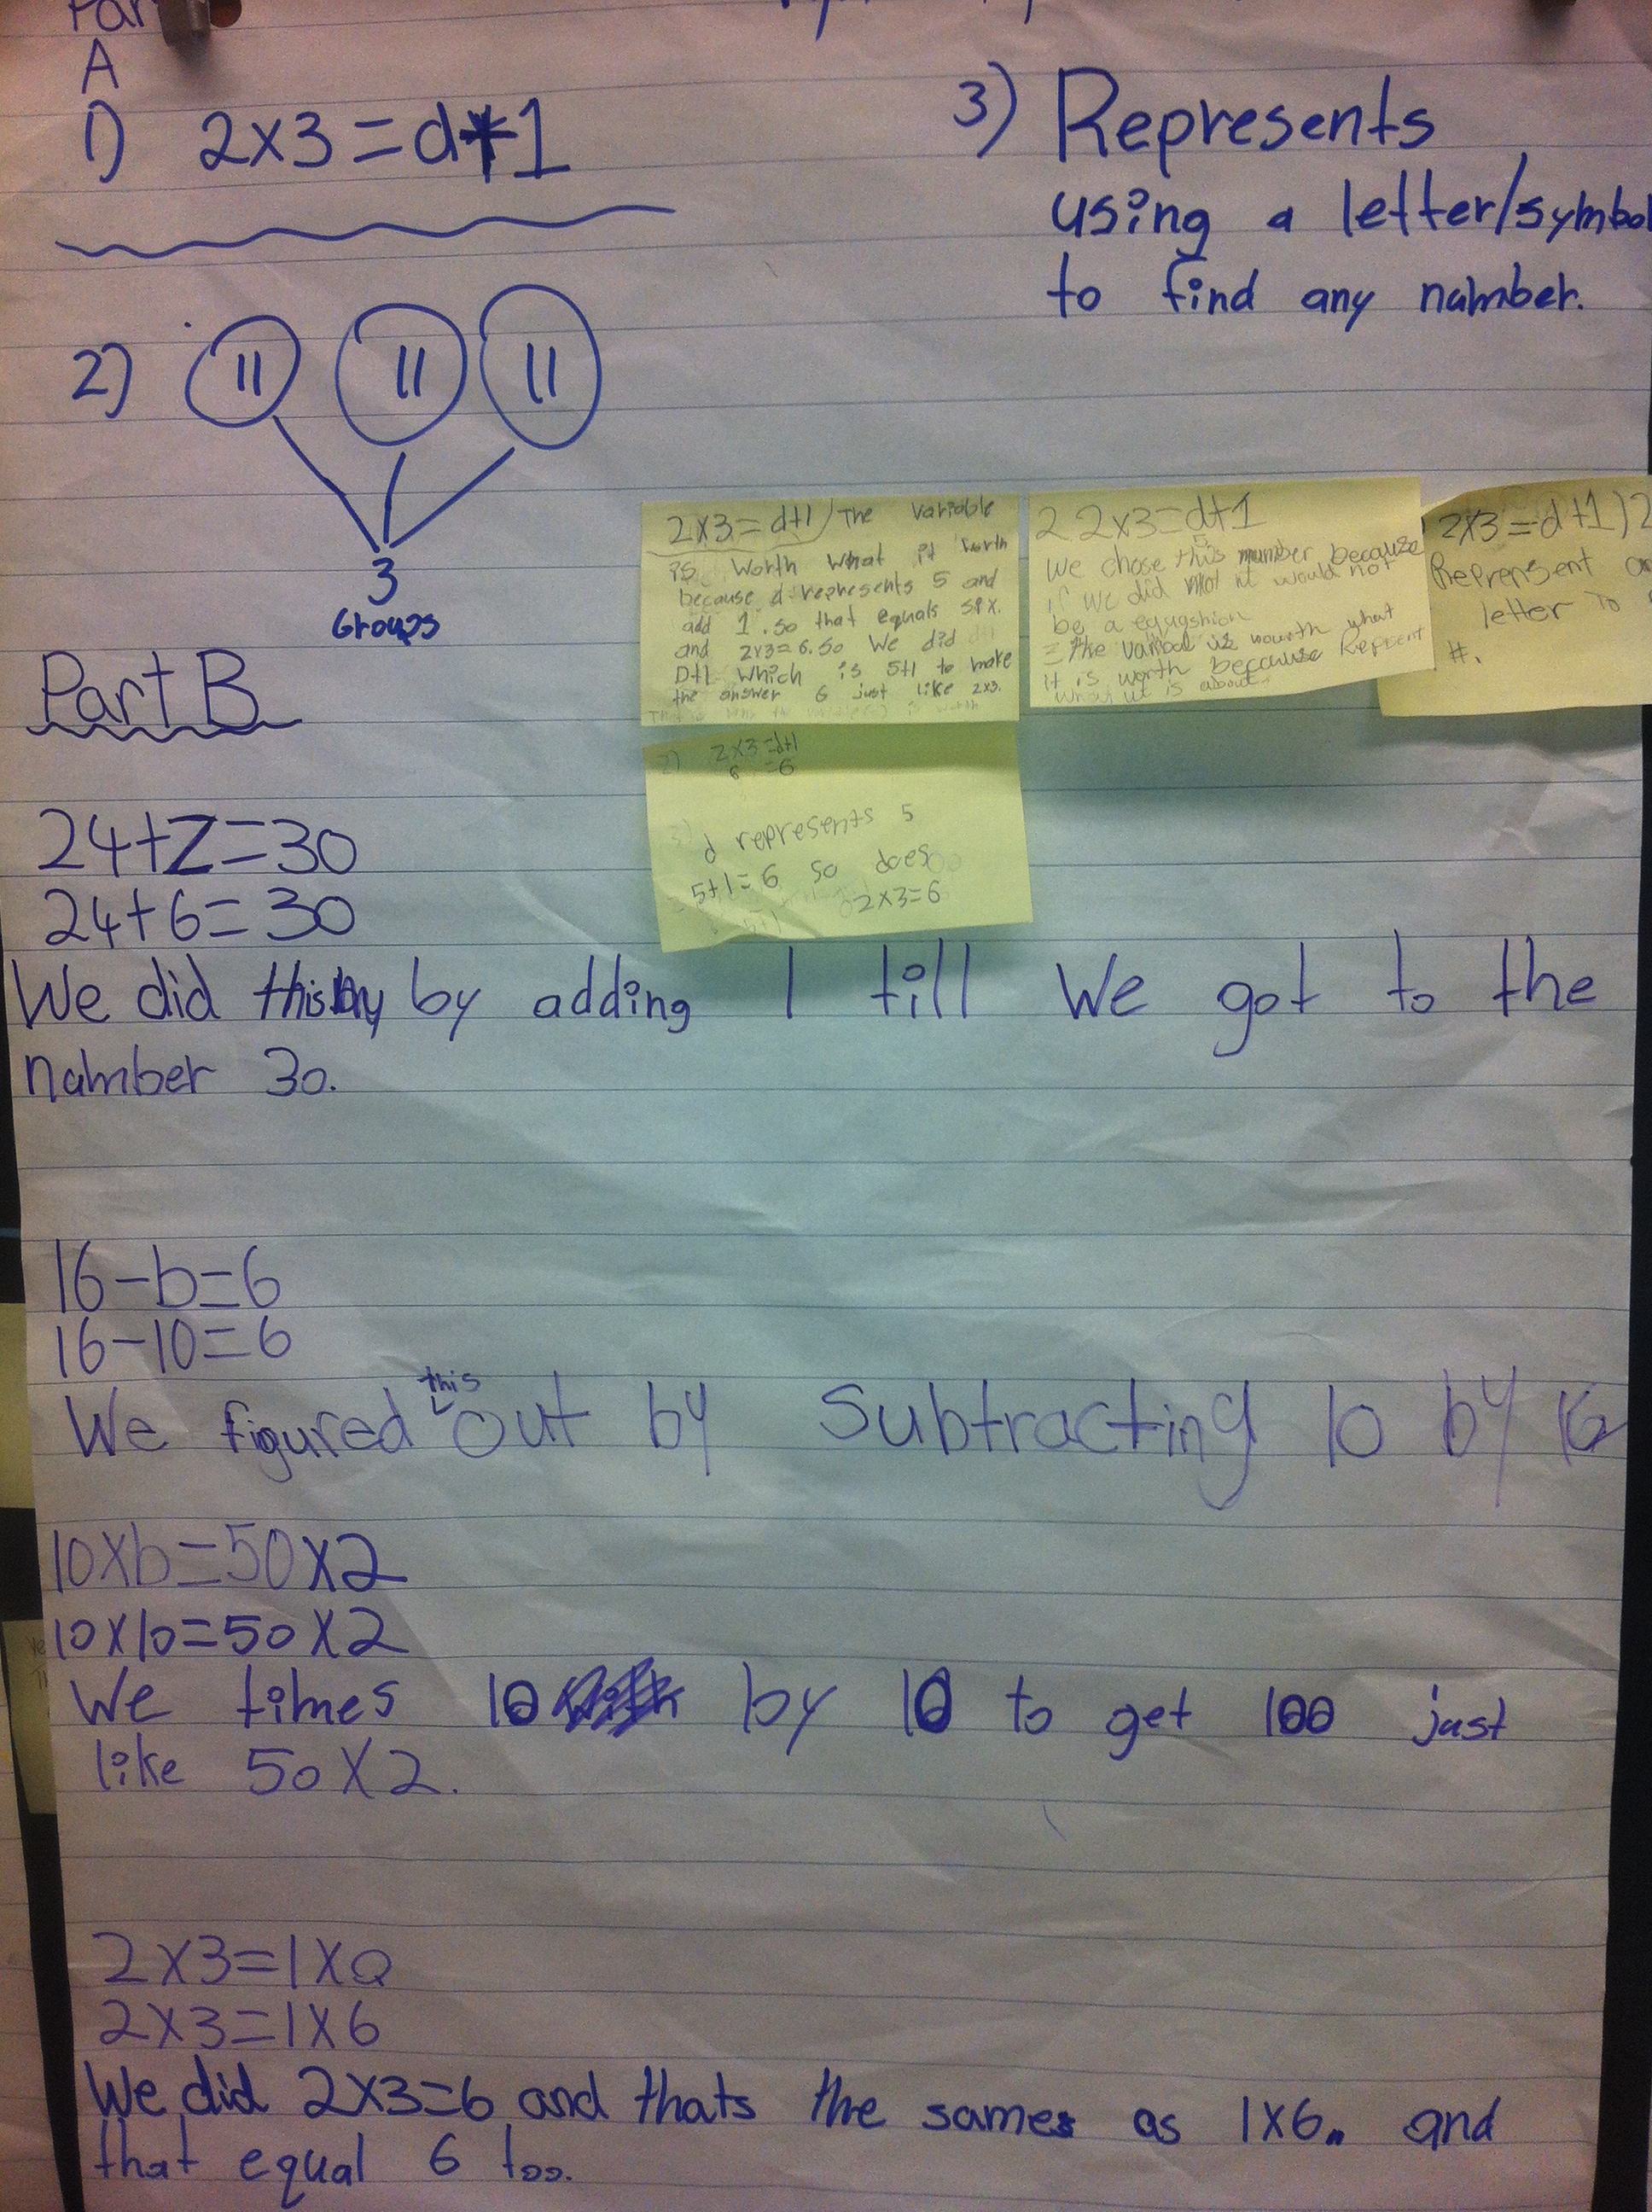 A
1) 2x3=d+1
2) || || ||
3
Groups
3) Represents
using a letter/symbol
to find any number.
2x3=d+1 The Variable
is worth what it worth
because d represents 5 and
add 1. so that equals six.
and 2x3=6. so We did
D+1 which is 5+1 to make
the answer 6 just like 2x3.
2 2x3=d+1
5
We chose this number because
if we did not it would not
be a equgshion
the varibal is wourth what
it is worth because Repsent
what it is about.
2x3=d+1) 2
Reprensent
letter To
#.
2) 2x3=d+1
6 =6
3)
d represents 5
5+1=6 so does
2x3=6
Part B
24+Z=30
24+6=30
We did this by by adding 1 till We got to the
number 30.
16-b=6
16-10=6
We figured this out by Subtracting 10 by 16
10xb=50x2
10x10=50x2
We times 10 by 10 to get 100 just
like 50x2.
2x3=1xQ
2x3=1x6
We did 2x3=6 and thats the same as 1x6. and
that equal 6 too.